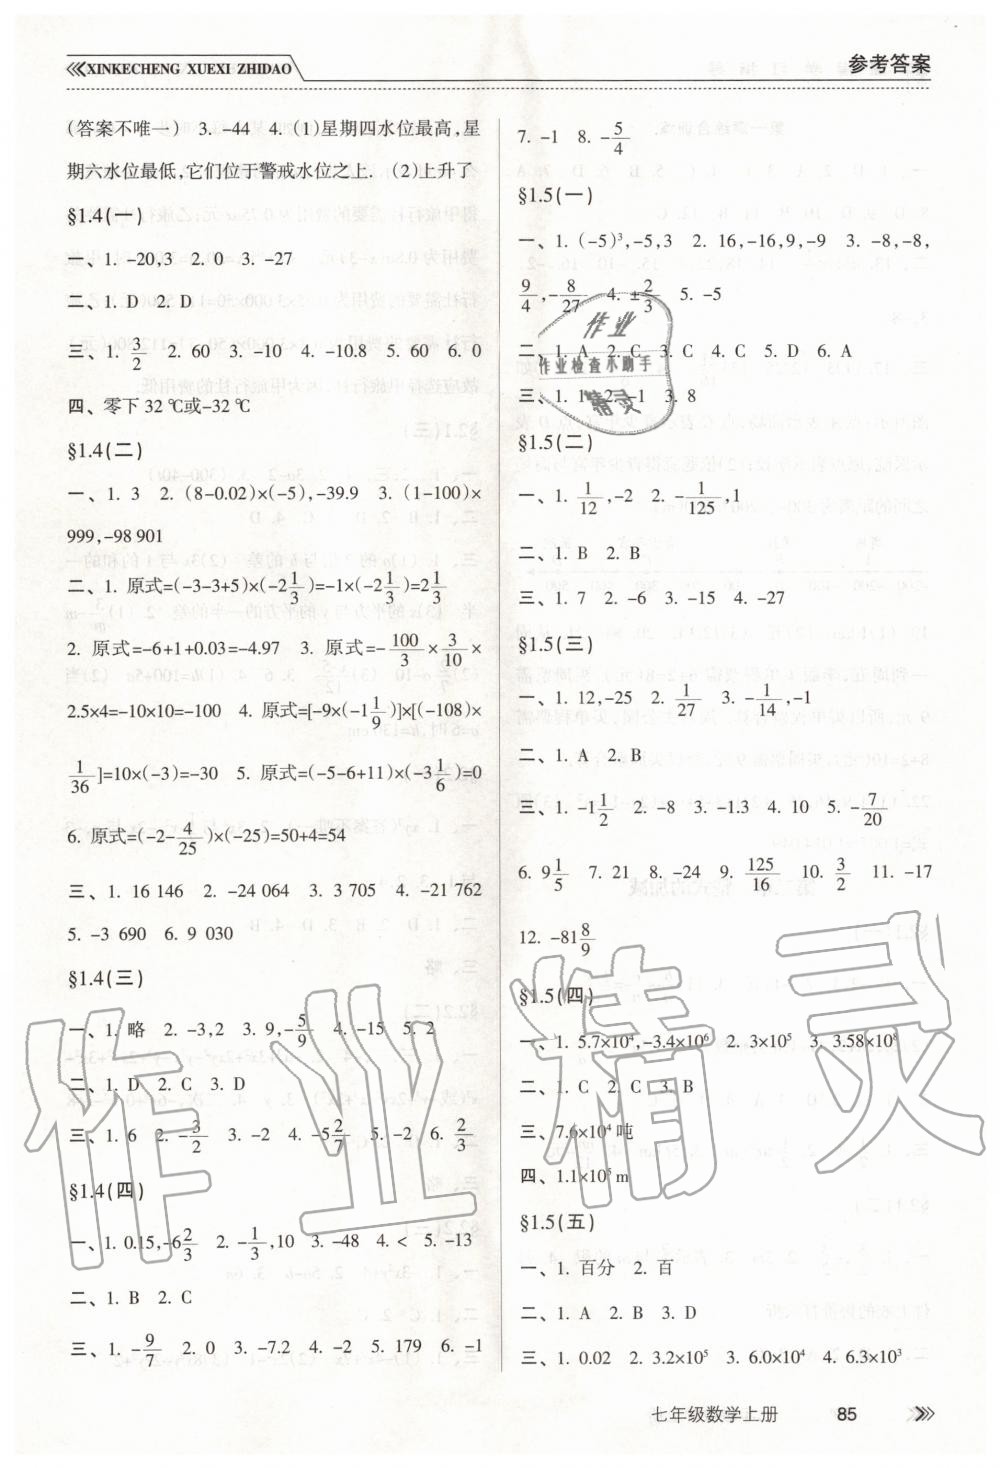 XINKECHENG XUEXI ZHIDAO
参考答案
(答案不唯一) 3. -44 4. (1)星期四水位最高,星
期六水位最低,它们位于警戒水位之上. (2)上升了
§1.4(一)
一、1. -20,3 2. 0 3. -27
二、1. D 2. D
三、1. 3/2 2. 60 3. -10 4. -10.8 5. 60 6. 0
四、零下 32 ℃或-32 ℃
§1.4(二)
一、1. 3 2. (8-0.02)×(-5),-39.9 3. (1-100)×
999,-98 901
二、1. 原式=(-3-3+5)×(-2 1/3)=-1×(-2 1/3)=2 1/3
2. 原式=-6+1+0.03=-4.97 3. 原式=-100/3×3/10×
2.5×4=-10×10=-100 4. 原式=[-9×(-1 1/9)]×[(-108)×
1/36]=10×(-3)=-30 5. 原式=(-5-6+11)×(-3 1/6)=0
6. 原式=(-2-4/25)×(-25)=50+4=54
三、1. 16 146 2. -24 064 3. 3 705 4. -21 762
5. -3 690 6. 9 030
§1.4(三)
一、1. 略 2. -3,2 3. 9,-5/9 4. -15 5. 2
二、1. D 2. C 3. D
三、1. 6 2. -3/2 3. -2 4. -5 2/7 5. -2 6. 2/3
§1.4(四)
一、1. 0.15,-6 2/3 2. -1/3,10 3. -48 4. < 5. -13
二、1. B 2. C
三、1. -9/7 2. 0 3. -7.2 4. -2 5. 179 6. -1
7. -1 8. -5/4
§1.5(一)
一、1. (-5)³,-5,3 2. 16,-16,9,-9 3. -8,-8,
9/4,-8/27 4. ±2/3 5. -5
二、1. A 2. C 3. C 4. C 5. D 6. A
三、1. 1 2. -1 3. 8
§1.5(二)
一、1. 1/12,-2 2. -1/125,1
二、1. B 2. B
三、1. 7 2. -6 3. -15 4. -27
§1.5(三)
一、1. 12,-25 2. 1/27 3. -1/14,-1
二、1. A 2. B
三、1. -1 1/2 2. -8 3. -1.3 4. 10 5. -7/20
6. 9 1/5 7. 21 8. -24 9. 125/16 10. 3/2 11. -17
12. -81 8/9
§1.5(四)
一、1. 5.7×10⁴,-3.4×10⁶ 2. 3×10⁵ 3. 3.58×10⁸
二、1. C 2. C 3. B
三、7.6×10⁴ 吨
四、1.1×10⁵ m
§1.5(五)
一、1. 百分 2. 百
二、1. A 2. B 3. D
三、1. 0.02 2. 3.2×10⁵ 3. 6.0×10⁴ 4. 6.3×10³
作业
作业检查小助手
精灵
作业精灵
七年级数学上册 85